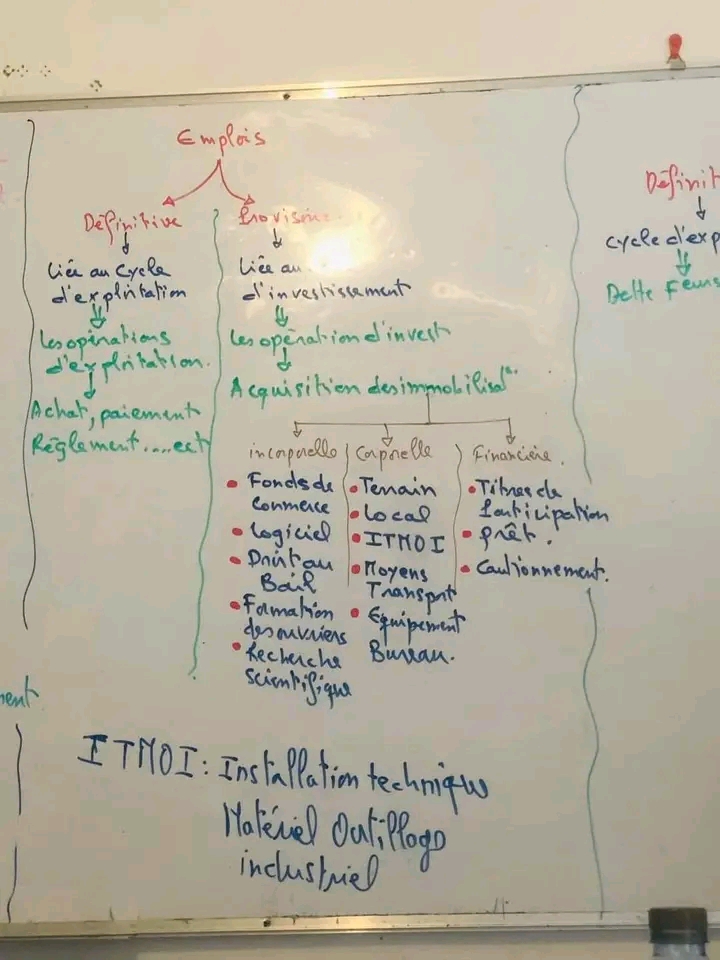 Emplois
Définitive
Liée au Cycle
d'exploitation
Les opérations
d'exploitation.
Achat, paiement
Règlement....ect
Liée au
d'investissement
Les opération d'invest
Acquisition des immobilisat°.
incorporelle
Fonds de
Commerce
Logiciel
Droit au
Bail
Formation
des ouvriers
Recherche
scientifique
Corporelle
Terrain
Local
ITMOI
Moyens
Transport
Equipement
Bureau.
Financière.
Titres de
Participation
prêt.
Cautionnement.
Définit
cycle d'exp
Dette Fours
ment
ITMOI: Installation technique
Matériel Outillage
industriel